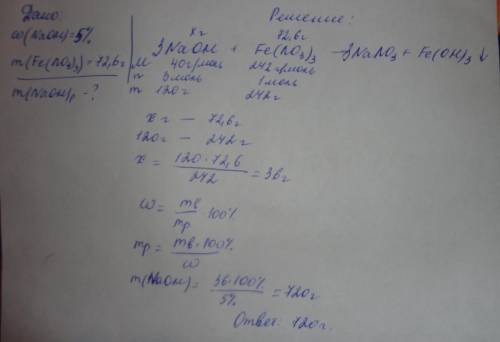 Дано:
ω(NaOH)=5%
m(Fe(NO₃)₃)=72,6г
m(NaOH)р - ?
Решение:
xг 72,6г
3NaOH + Fe(NO₃)₃ → 3NaNO₃ + Fe(OH)₃↓
M 40г/моль 242г/моль
n 3моль 1моль
m 120г 242г
xг — 72,6г
120г — 242г
x = 120·72,6 / 242 = 36г
ω = mв / mр · 100%
mр = mв·100% / ω
m(NaOH) = 36·100% / 5% = 720г
Ответ: 720г.